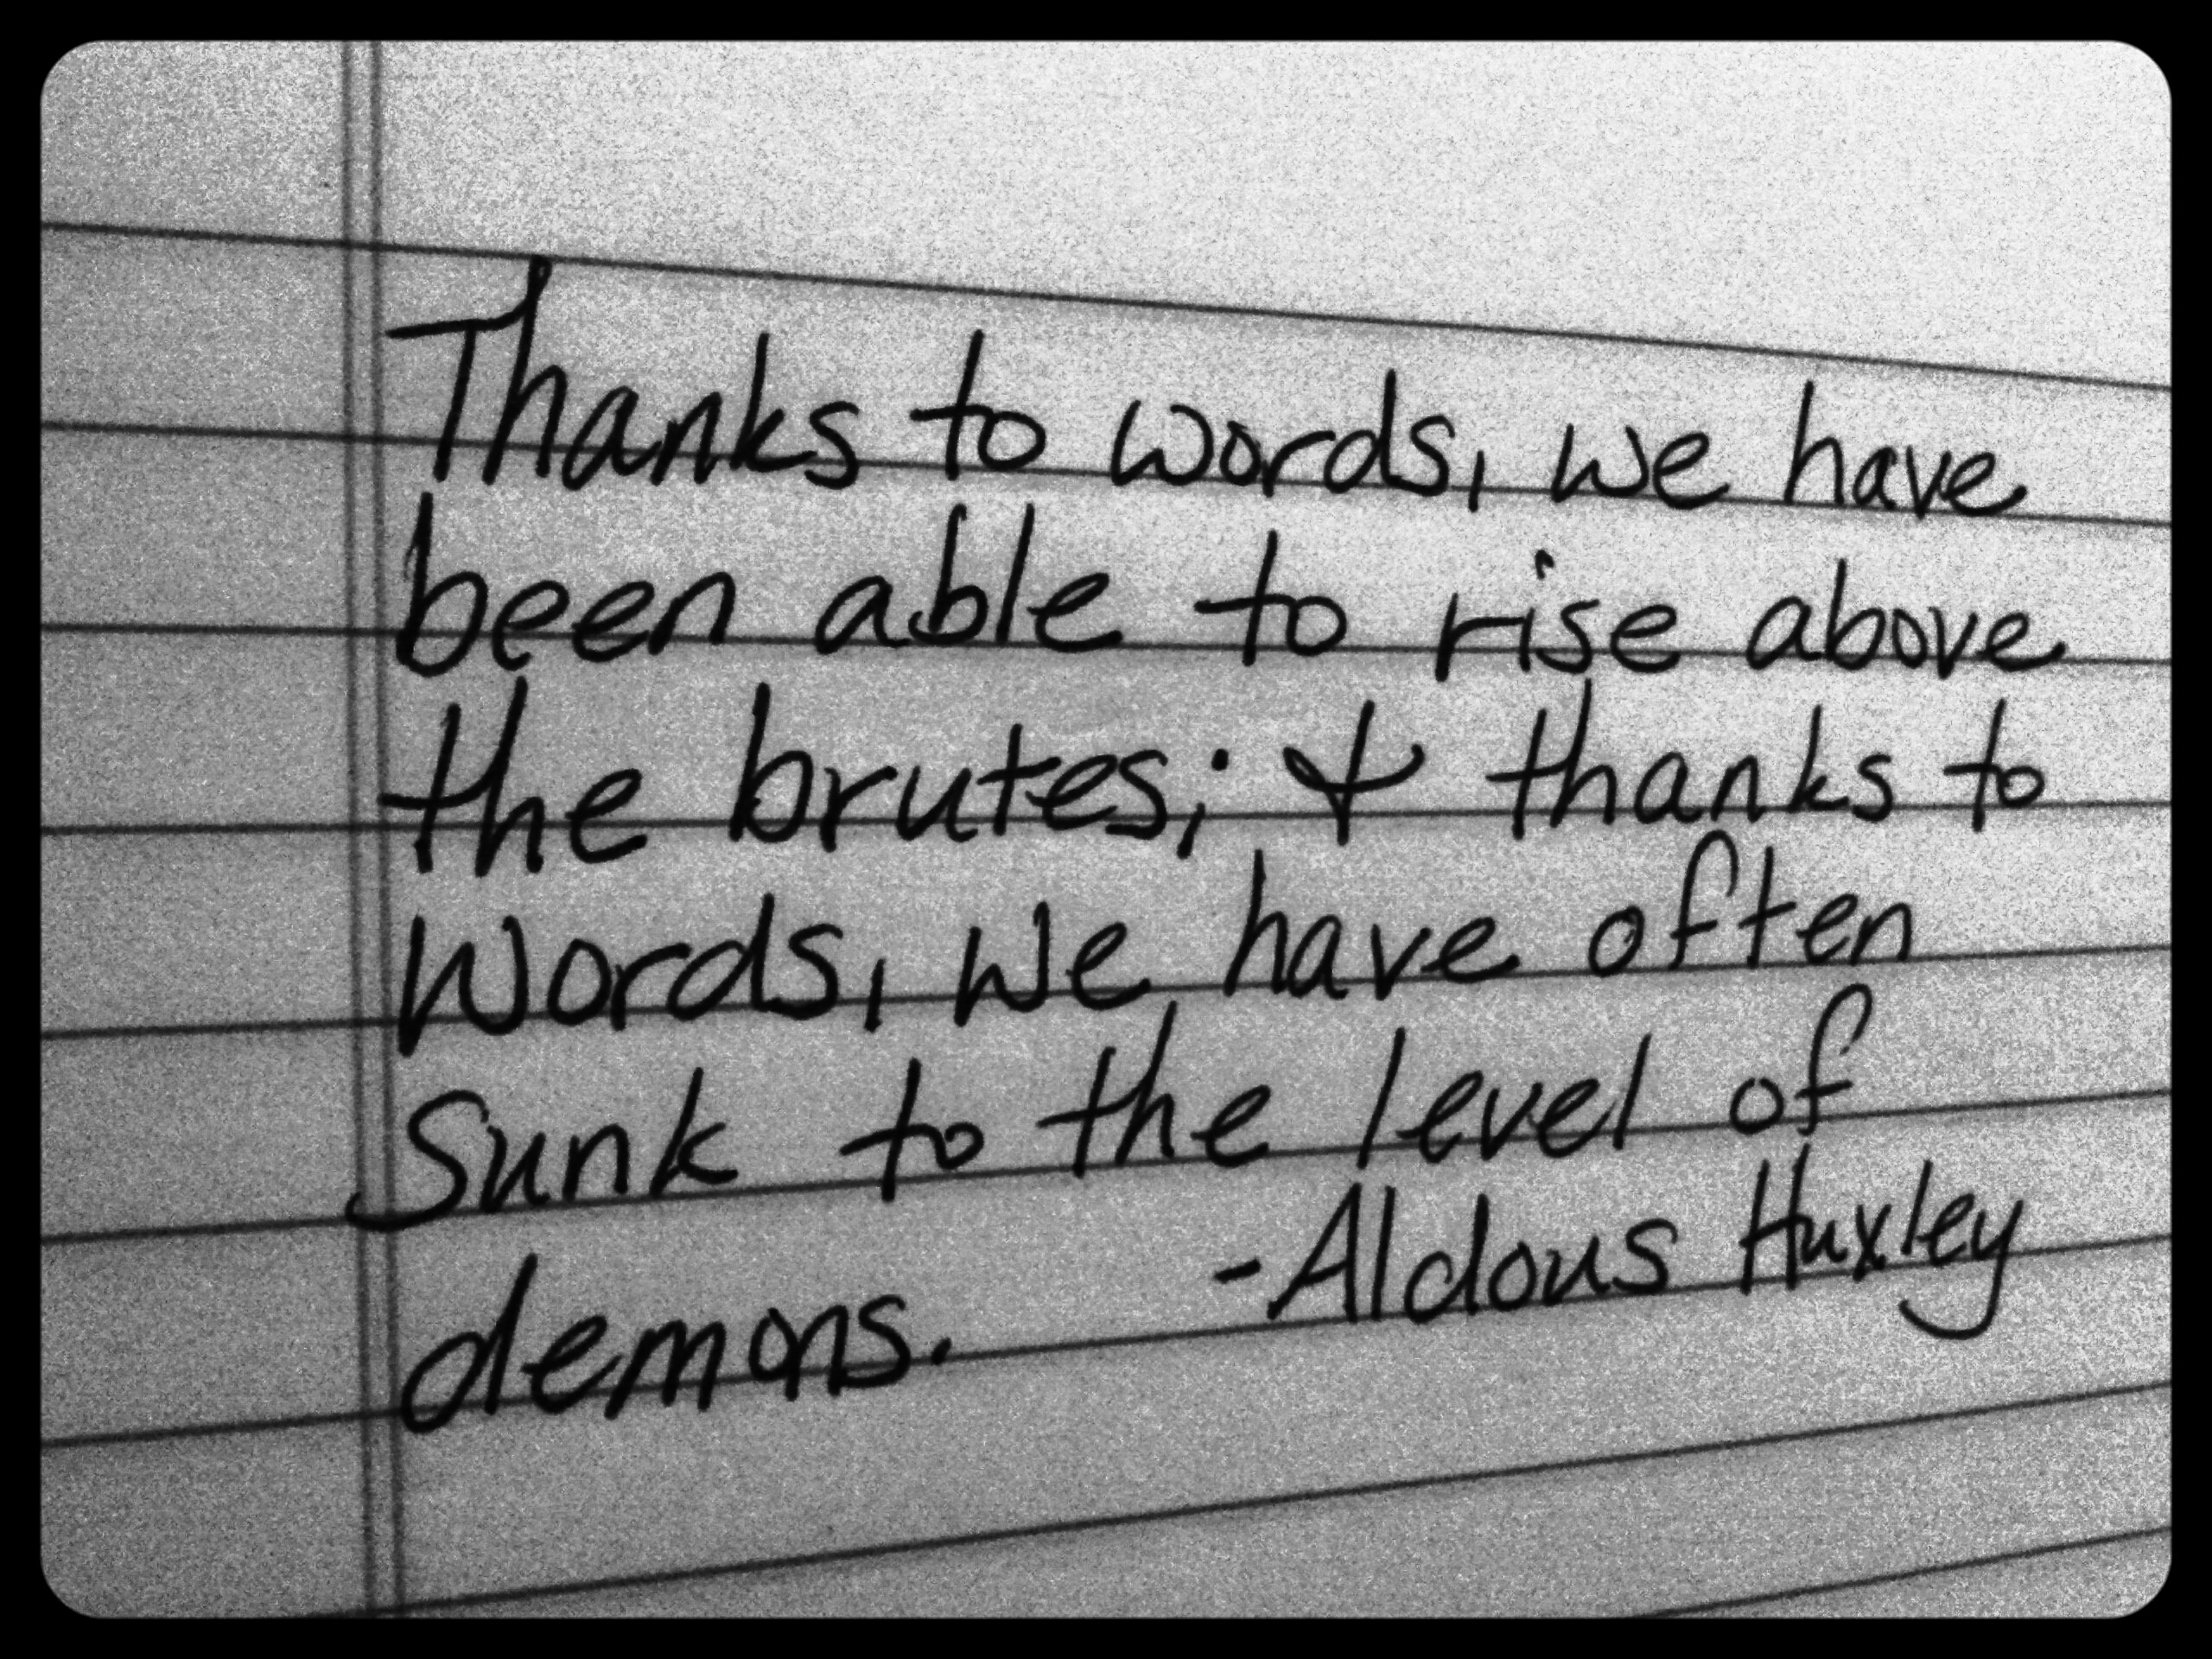 Thanks to words, we have
been able to rise above
the brutes; & thanks to
words, we have often
sunk to the level of
demons. -Aldous Huxley